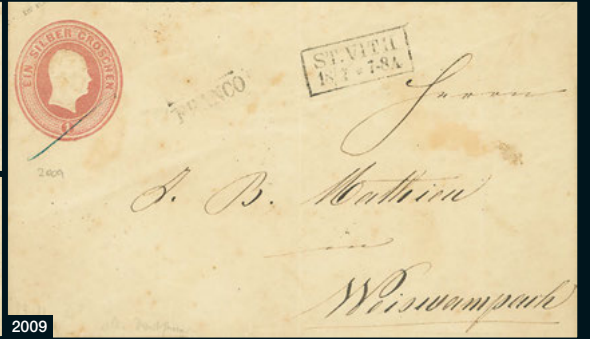 EIN SILBER GROSCHEN
FRANCO
ST. VITH
18 7 * 7-8 A
Herrn
J. B. Mathieu
in
Weiswampach
2009
2009